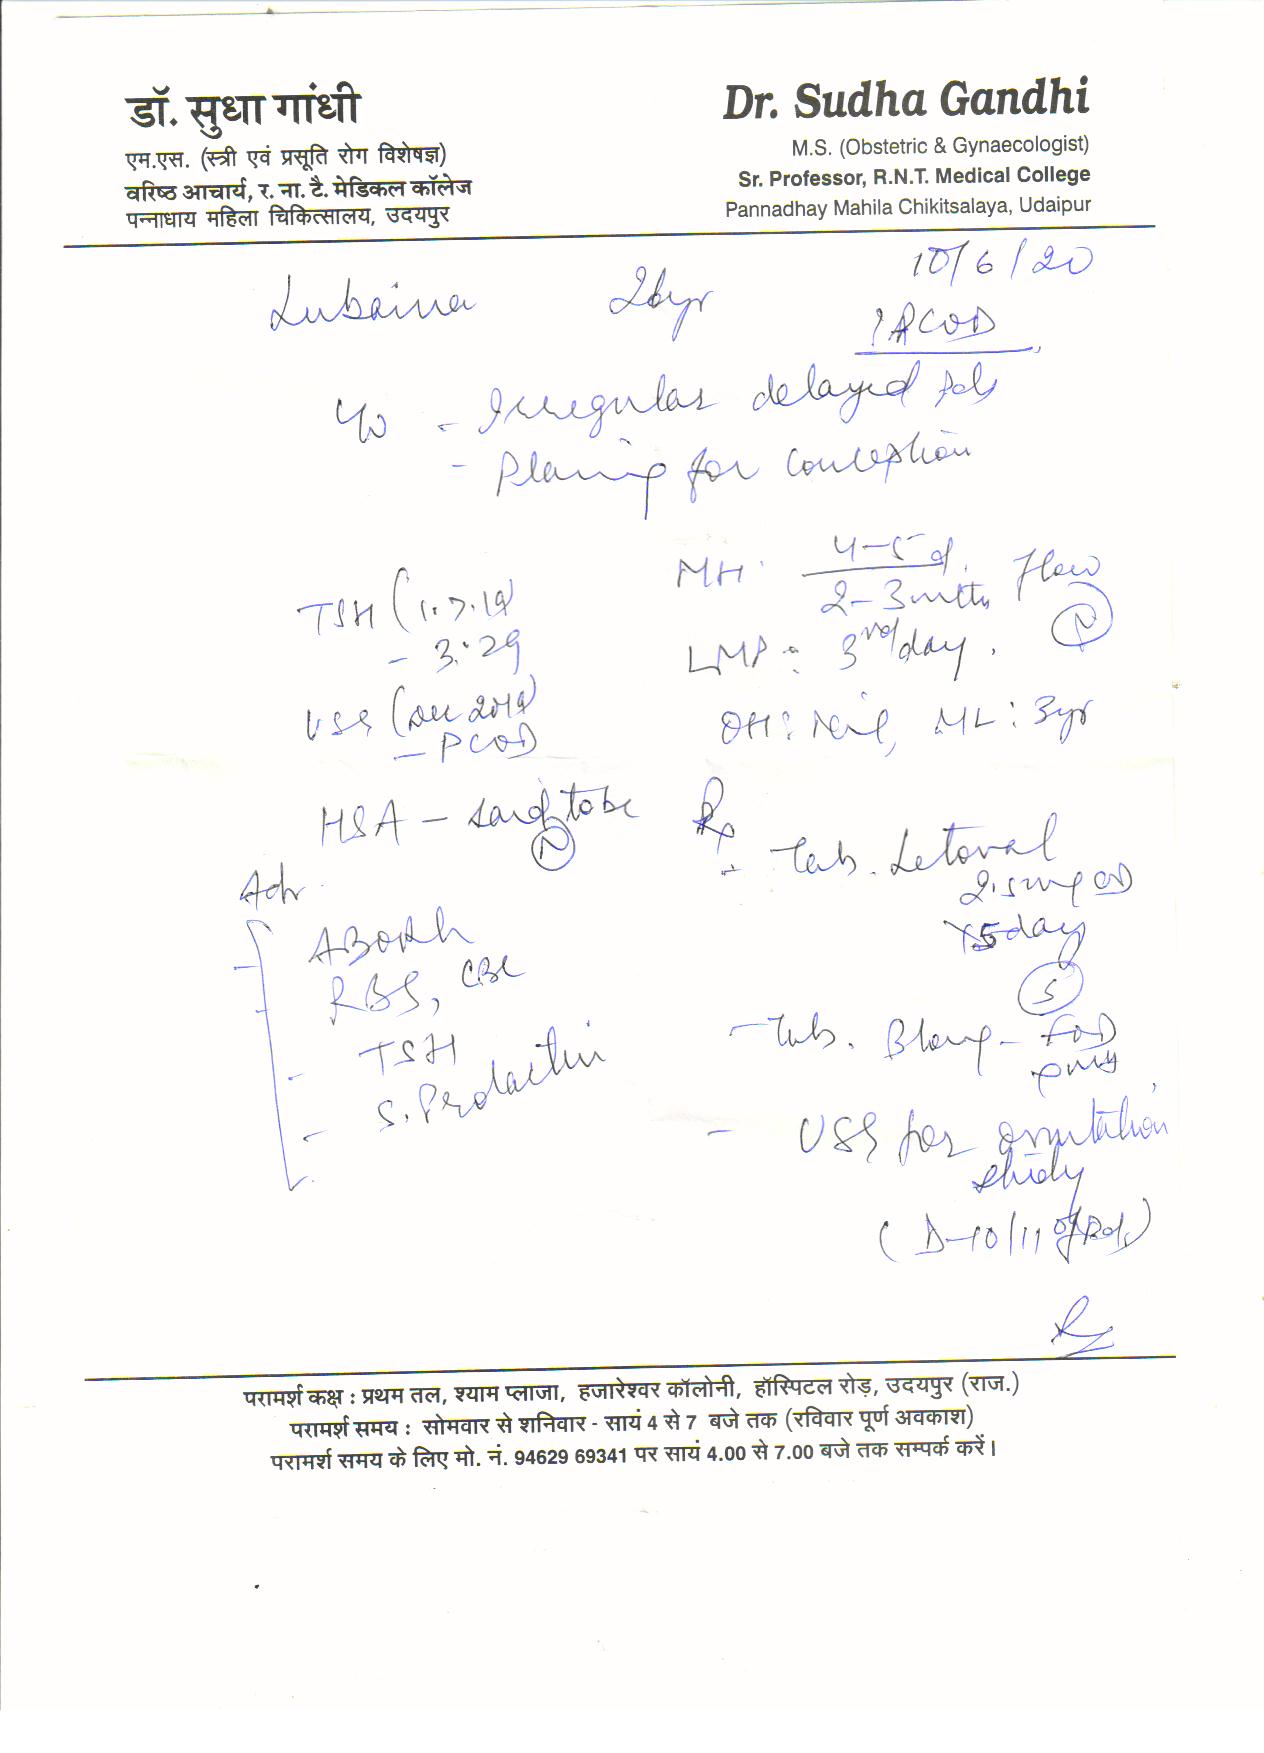 डॉ. सुधा गांधी
एम.एस. (स्त्री एवं प्रसूति रोग विशेषज्ञ)
वरिष्ठ आचार्य, र. ना. टै. मेडिकल कॉलेज
पन्नाधाय महिला चिकित्सालय, उदयपुर
Dr. Sudha Gandhi
M.S. (Obstetric & Gynaecologist)
Sr. Professor, R.N.T. Medical College
Pannadhay Mahila Chikitsalaya, Udaipur
10/6/20
Lubaina 26yr
? PCOD
- Irregular delayed
- Planing for conception
MH: 4-5d / 2-3 mths Flow (N)
TSH (1.7.19)
- 3.29
LMP: 3rd day.
USG (Dec 2019)
- PCOD
OH: Neil, ML: 3yr
HSA - said to be (N)
Rx
- Tab. Letoval
2.5mg OD
x5day
(5)
Adv
ABORh
RBS, CBC
- TSH
- S. Prolactin
- Tab. OD
- USG for ovulation
study
(D-10/11 of
परामर्श कक्ष : प्रथम तल, श्याम प्लाजा, हजारेश्वर कॉलोनी, हॉस्पिटल रोड़, उदयपुर (राज.)
परामर्श समय : सोमवार से शनिवार - सायं 4 से 7 बजे तक (रविवार पूर्ण अवकाश)
परामर्श समय के लिए मो. नं. 94629 69341 पर सायं 4.00 से 7.00 बजे तक सम्पर्क करें।